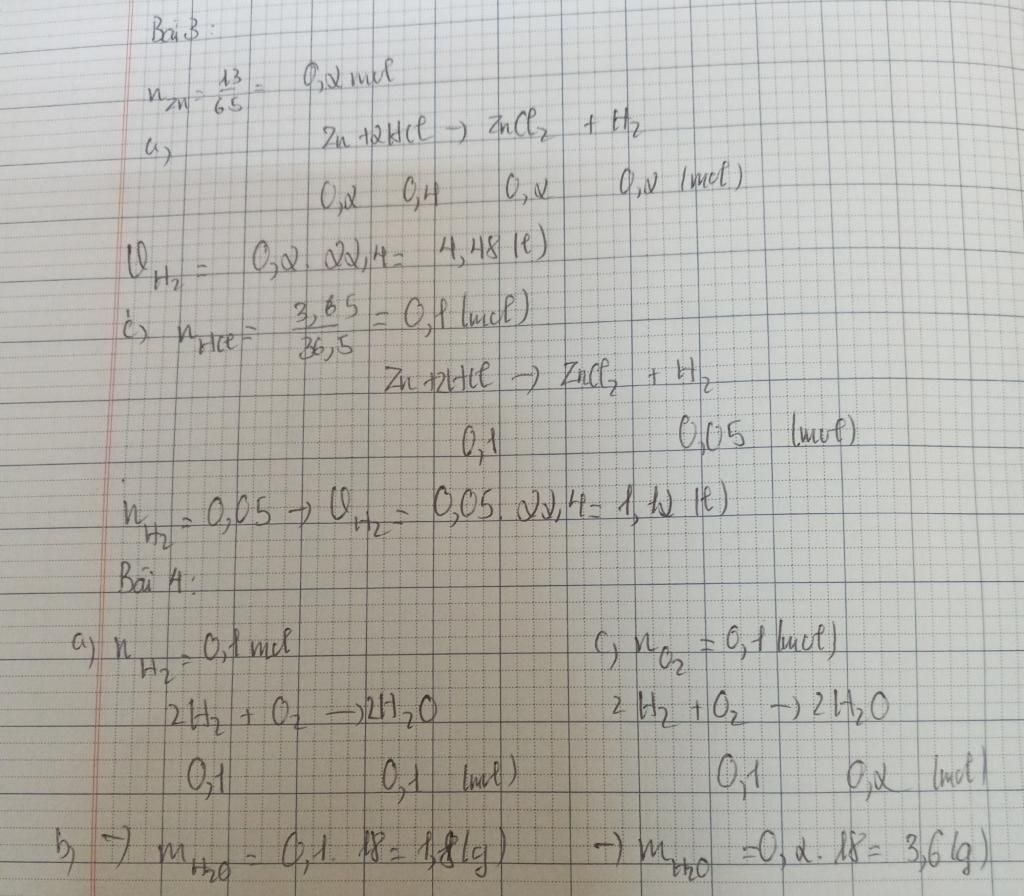 Bài 3:
n Zn = 13/65 = 0,2 mol
a) Zn + 2HCl → ZnCl₂ + H₂
0,2 0,4 0,2 0,2 (mol)
V H₂ = 0,2. 22,4 = 4,48 (l)
c) n HCl = 3,65/36,5 = 0,1 (mol)
Zn + 2HCl → ZnCl₂ + H₂
0,1 0,05 (mol)
n H₂ = 0,05 → V H₂ = 0,05. 22,4 = 1,12 (l)
Bài 4:
a) n H₂ = 0,1 mol
2H₂ + O₂ → 2H₂O
0,1 0,1 (mol)
b) → m H₂O = 0,1. 18 = 1,8 (g)
c) n O₂ = 0,1 (mol)
2H₂ + O₂ → 2H₂O
0,1 0,2 (mol)
→ m H₂O = 0,2. 18 = 3,6 (g)